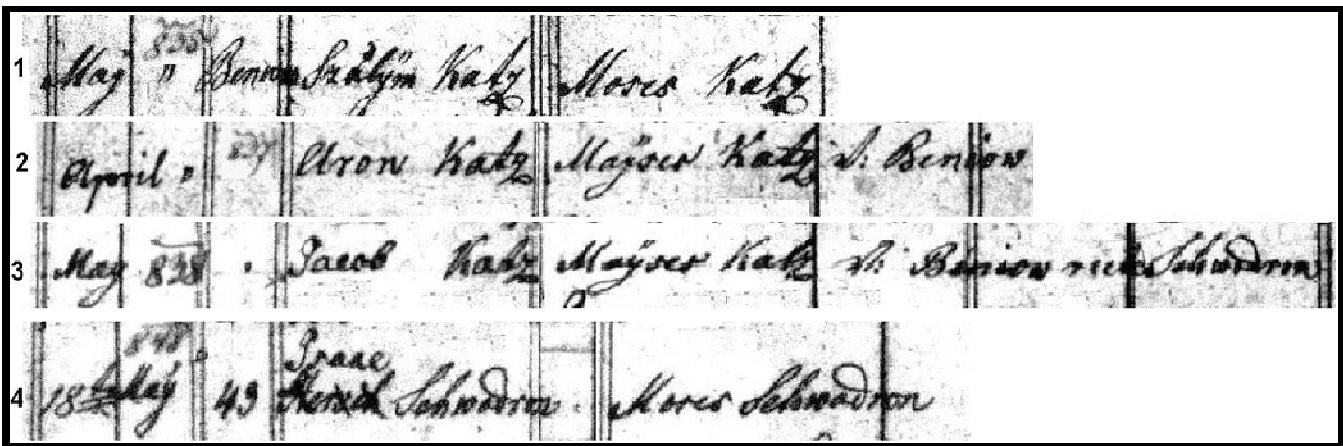 1 May " 835 Beniow Szalÿm Katz Moses Katz
2 April " 837 Aron Katz Maÿses Katz v: Beniow
3 May 838 . Jacob Katz Maÿses Katz v: Beniow Schwadron
4 848 Isaac
18 May 43 Hersch Schwadron. Moses Schwadron